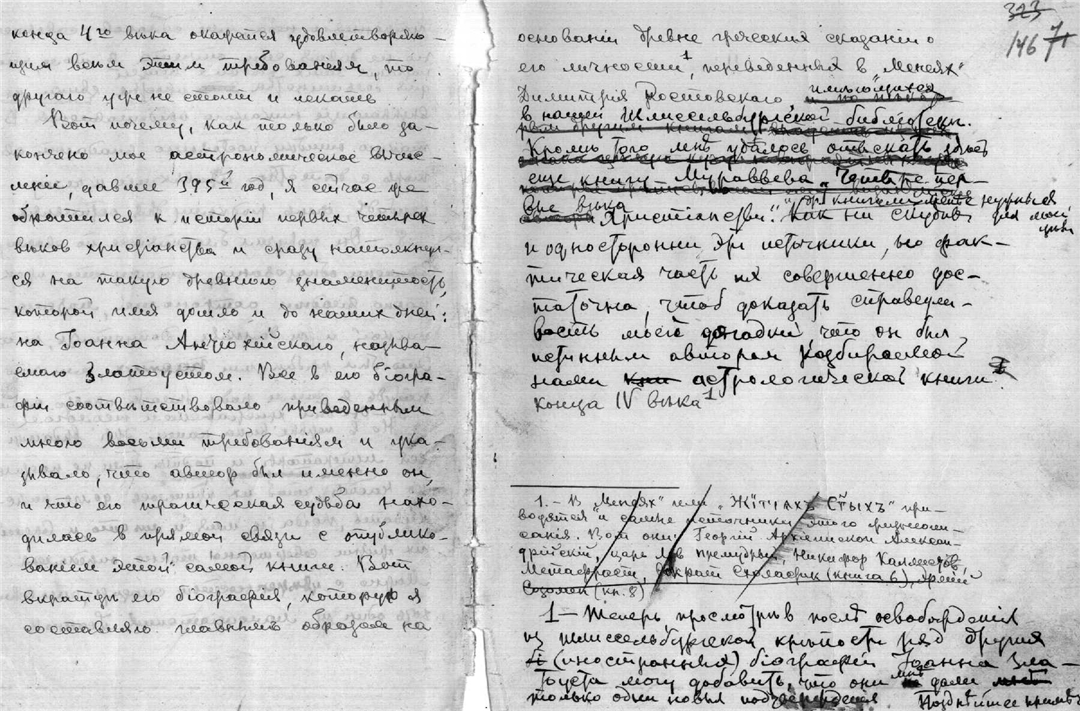 конца 4го вѣка окажется удовлетворяю-
щим всѣм этим требованіям, то
другого уж не стоит и искать.
Вот почему, как только было за-
кончено мое астрономическое вычис-
леніе, давшее 395й год, я сейчас же
обратился к исторіи первых четырех
вѣков христіанства и сразу натолкнул-
ся на такую древнюю знаменитость,
которой имя дошло и до наших дней:
на Іоанна Антіохійскаго, называ-
емаго Златоустом. Все в его біогра-
фіи соотвѣтствовало приведенным
мною восьми требованіям и ука-
зывало, что автор был именно он,
и что его трагическая судьба нахо-
дилась в прямой связи с опублико-
ваніем этой самой книги. Вот
вкратцѣ его біографія, которую я
составляю главным образом на
323
146 71
основаніи древне греческих сказаній о
его личности1, переведенных в „Минеях"
Димитрія Ростовскаго, имѣющихся
в нашей Шлиссельбургской библіотекѣ.
Кромѣ того мнѣ удалось отыскать здѣсь
еще книгу Муравьева „Четыре пер-
вые вѣка Христіанства". Как ни скудны
нужныя для моей цѣли
и односторонни эти источники, но фак-
тическая часть их совершенно дос-
таточна, чтоб доказать справедли-
вость моей догадки что он был
истинным автором разбираемой
нами астрологической книги
конца IV вѣка1
1.- В „Минеях" или „Житіях Стыхъ" при-
водятся и самые источники этого
сказанія. Вот они: Георгій Архіепископ Алексан-
дрійскій, царь Лев премудрый, Никифор Каллистов,
Метафраст, Сократ Схоластик (книга 6), Ермій
Созомен (кн. 8)
1 — Теперь, просмотрѣв послѣ освобожденія
из шлиссельбургской крѣпости ряд других
(иностранных) біографій Іоанна Зла-
тоуста могу добавить, что они мнѣ дали
только одни новыя подтвержденія Позднѣйшее примѣч